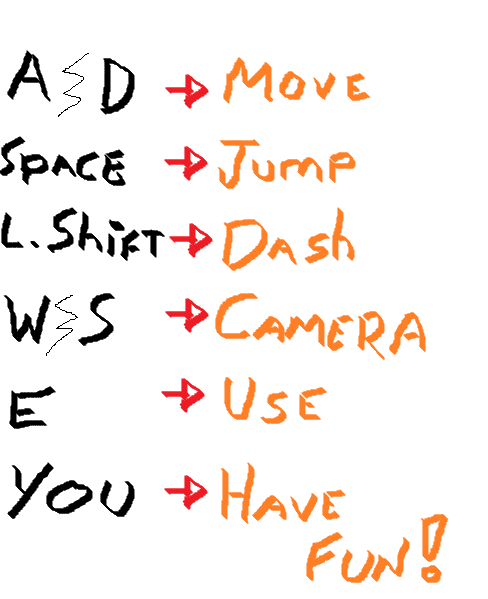 A & D → MOVE
SPACE → JUMP
L.Shift → Dash
W & S → CAMERA
E → USE
YOU → HAVE
FUN!